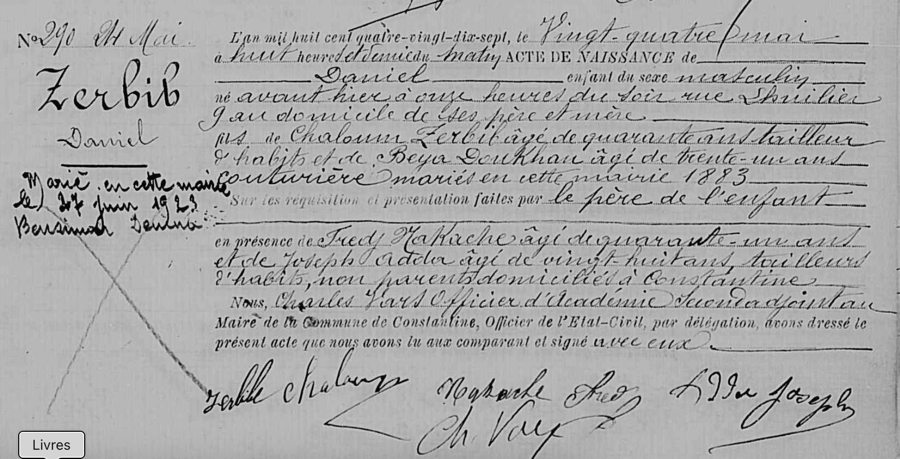 N° 290 24 Mai
Zerbib
Daniel
Marié en cette mairie
le 27 juin 1923
Bensimon
L'an mil huit cent quatre-vingt-dix-sept, le Vingt-quatre mai
à huit heures et demie du matin ACTE DE NAISSANCE de
Daniel enfant du sexe masculin
né avant hier à onze heures du soir rue Lhuilier
9 au domicile de ses père et mère
fils de Chaloum Zerbib âgé de quarante ans tailleur
d'habits et de Beya Doukhan âgé de trente-un ans
couturière mariés en cette mairie 1883
Sur les requisition et présentation faites par le père de l'enfant
en présence de Fredj Nakache âgé de quarante-un ans
et de Joseph Adda âgé de vingt huit ans, tailleurs
d'habits, non parents domiciliés à Constantine
Nous, Charles Vars Officier d'Académie Second adjoint au
Maire de la Commune de Constantine, Officier de l'Etat-Civil, par délégation, avons dressé le
présent acte que nous avons lu aux comparant et signé avec eux
Zerbib Chaloum
Nakache Fredj
Adda Joseph
Ch. Vars
Livres